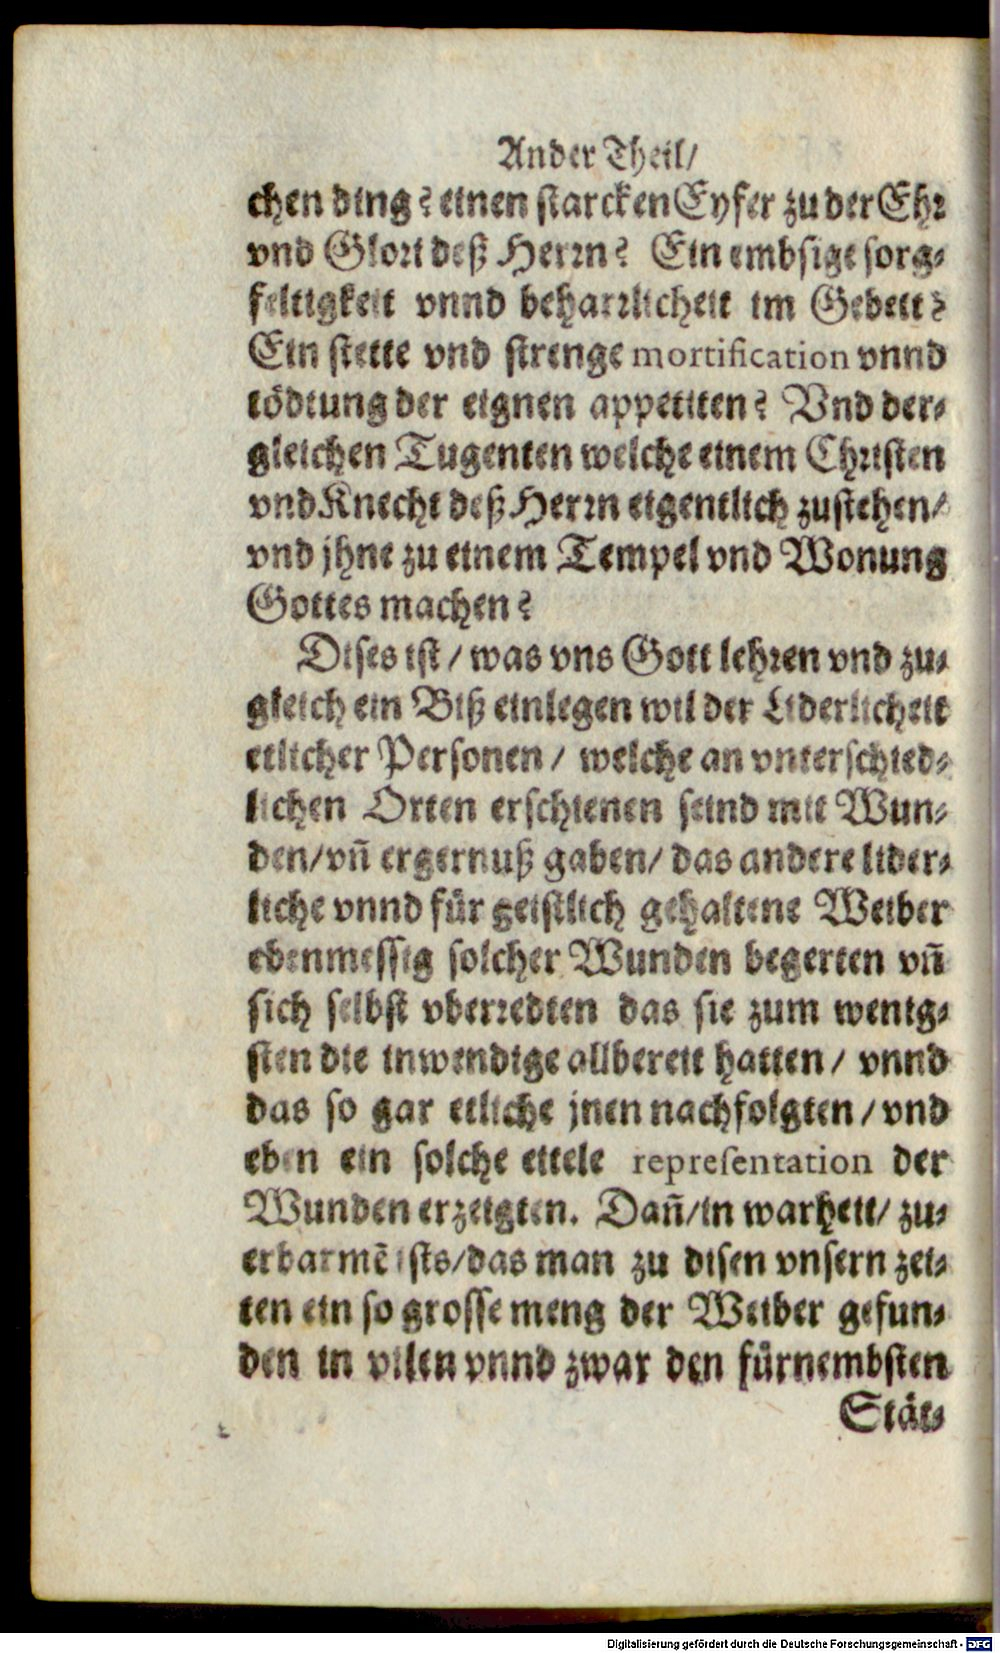 Ander Theil/
chen ding? einen starcken Eyfer zu der Ehr
vnd Glori deß Herrn? Ein embsige sorg-
feltigkeit vnnd beharrlicheit im Gebett?
Ein stette vnd strenge mortification vnnd
tödtung der eignen appetiten? Vnd der-
gleichen Tugenten welche einem Christen
vnd Knecht deß Herrn eigentlich zustehen/
vnd jhne zu einem Tempel vnd Wonung
Gottes machen?
Dises ist / was vns Gott lehren vnd zu-
gleich ein Biß einlegen wil der Liderlicheit
etlicher Personen / welche an vnterschied-
lichen Orten erschienen seind mit Wun-
den/ vñ ergernuß gaben/ das andere lider-
liche vnnd für geistlich gehaltene Weiber
ebenmessig solcher Wunden begerten vñ
sich selbst vberredten das sie zum wenig-
sten die inwendige allbereit hatten / vnnd
das so gar etliche jnen nachfolgten / vnd
eben ein solche eitele repreſentation der
Wunden erzeigten. Dañ/ in warheit/ zu-
erbarmẽ ists/ das man zu disen vnsern zei-
ten ein so grosse meng der Weiber gefun-
den in vilen vnnd zwar den fürnembsten
Stät-
Digitalisierung gefördert durch die Deutsche Forschungsgemeinschaft - DFG